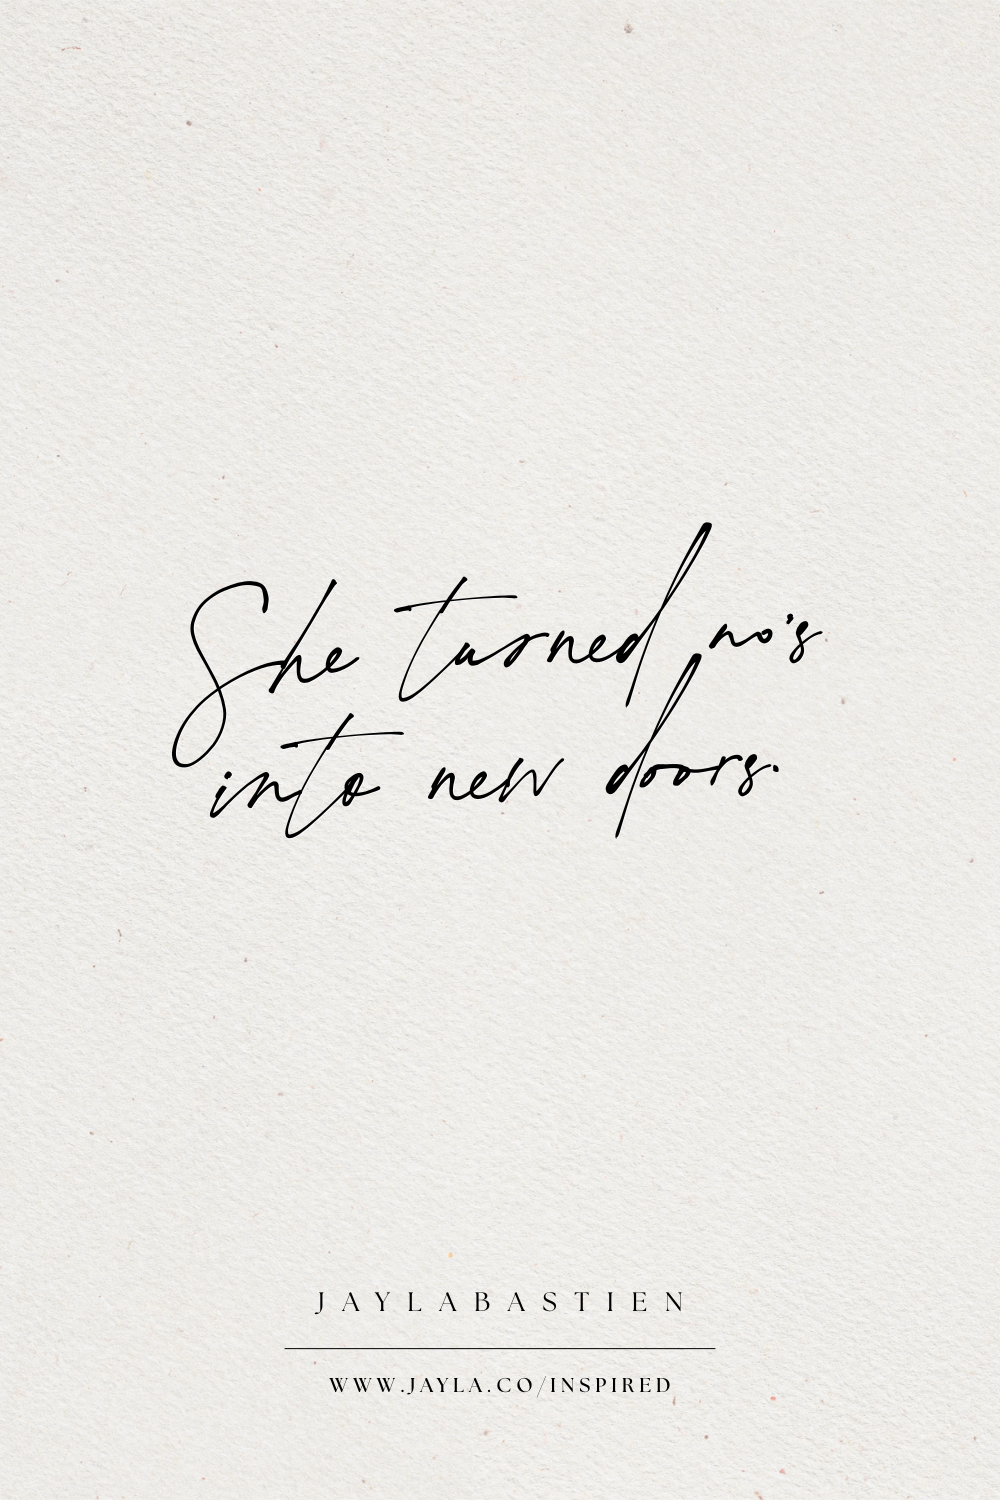 She turned no's
into new doors.
JAYLABASTIEN
WWW.JAYLA.CO/INSPIRED